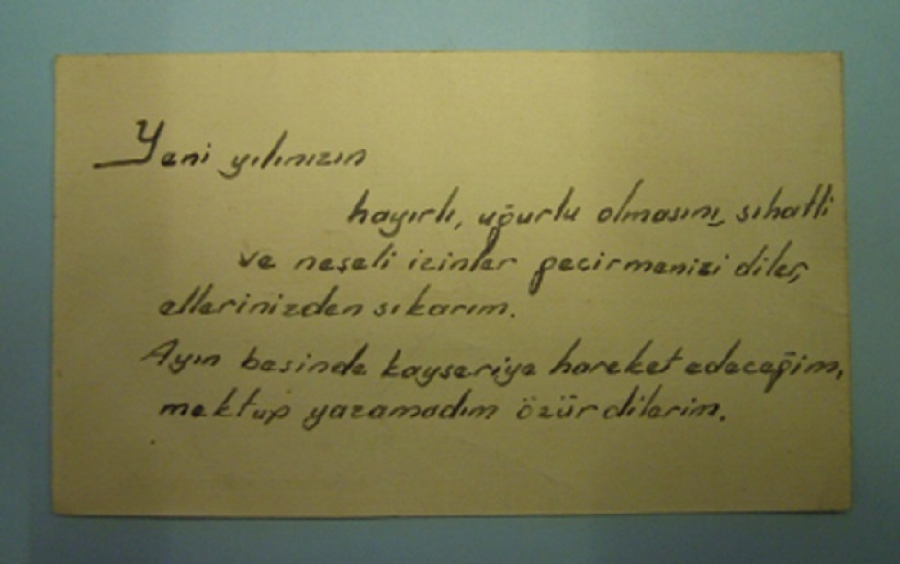 Yeni yılınızın
hayırlı, uğurlu olmasını, sıhatli
ve neşeli izinler geçirmenizi diler,
ellerinizden sıkarım.
Ayın besinde kayseriye hareket edeceğim,
mektup yazamadım özür dilerim.